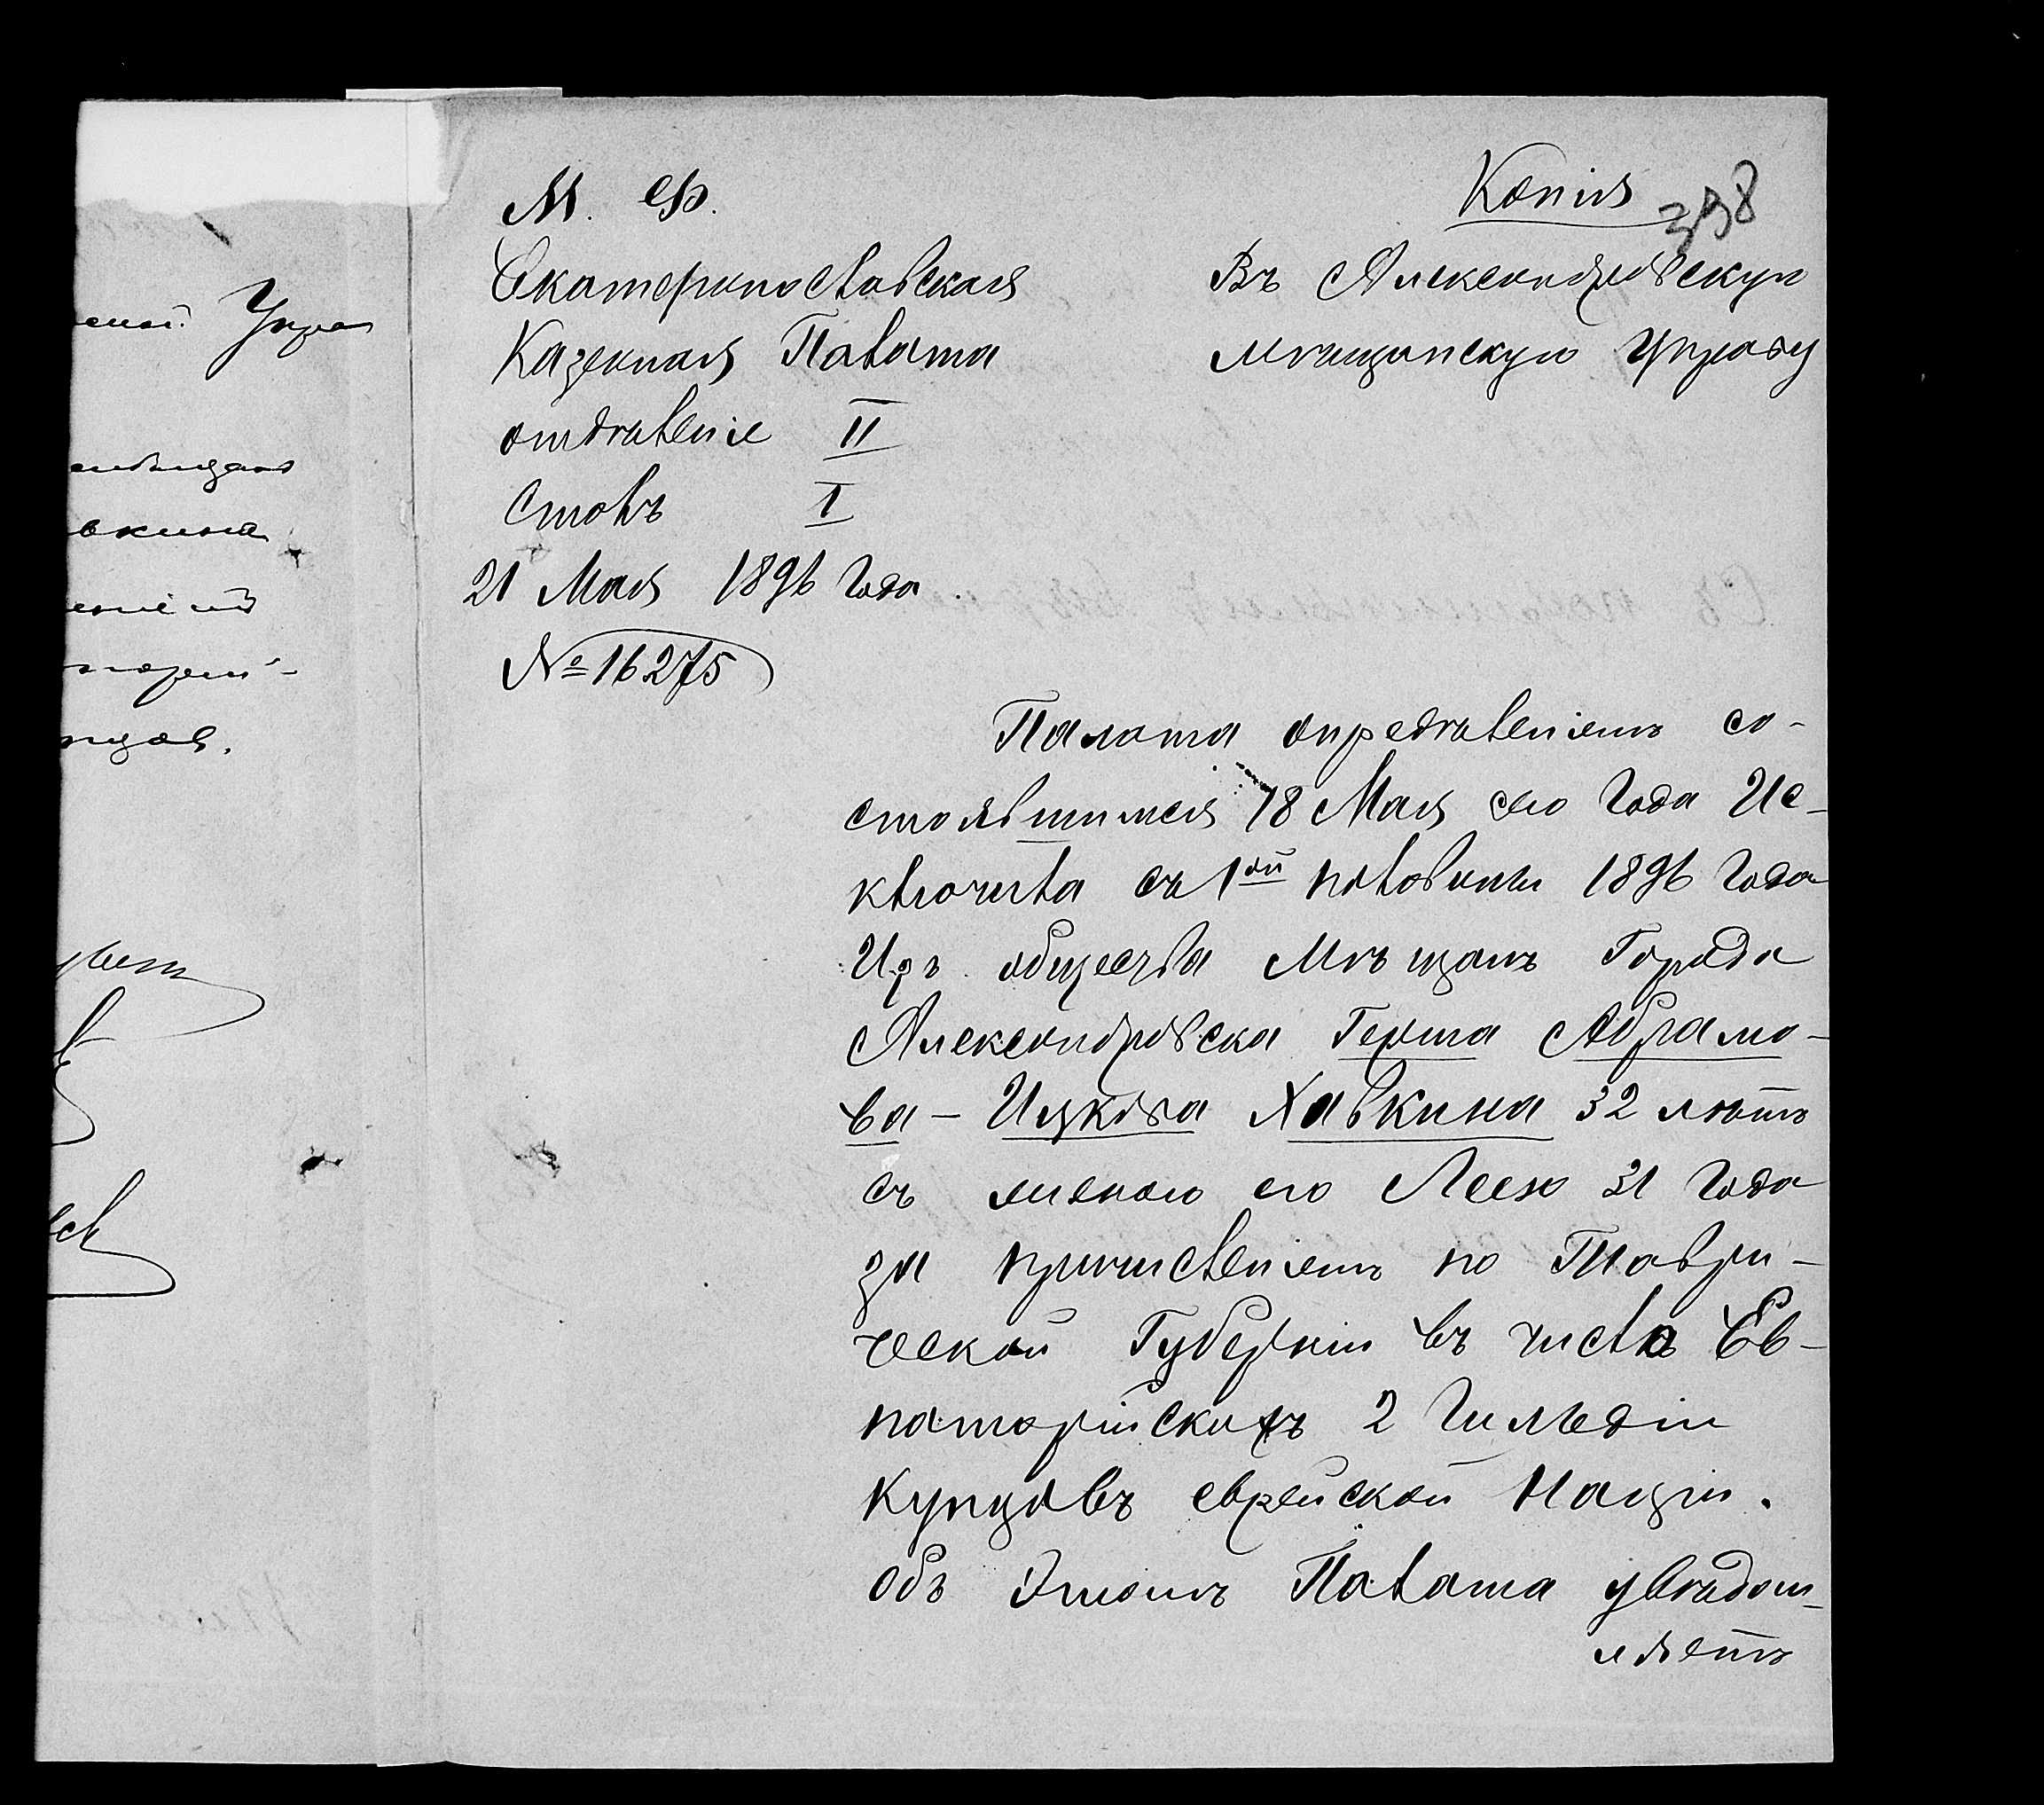 Копія
398
М. Ф.
Екатеринославская
Казенная Палата
отдѣленіе II
Столъ I
21 Мая 1896 Года.
№ 16275
Въ Александровскую
Мѣщанскую Управу
Палата опредѣленіемъ со-
стоявшимся 18 Мая сего Года Ис-
ключила съ 1ой половины 1896 Года
Изъ общества Мѣщанъ Города
Александровска Герша Абрамо-
ва-Ицкова Хавкина 32 лѣтъ
съ женою его Леею 31 Года
за причисленіемъ по Таври-
ческой Губерніи въ число Ев-
паторійскихъ 2 Гильдіи
Купцовъ еврейской Націи.
Объ Этомъ Палата увѣдом-
ляетъ